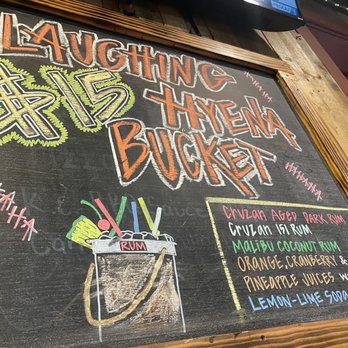 LAUGHING
$15 HYENA
BUCKET
HAHAHA
HAHAHA
HAHA
RUM
CRUZAN AGED DARK RUM
CRUZAN 151 RUM
MALIBU COCONUT RUM
ORANGE, CRANBERRY &
PINEAPPLE JUICES W
LEMON-LIME SODA